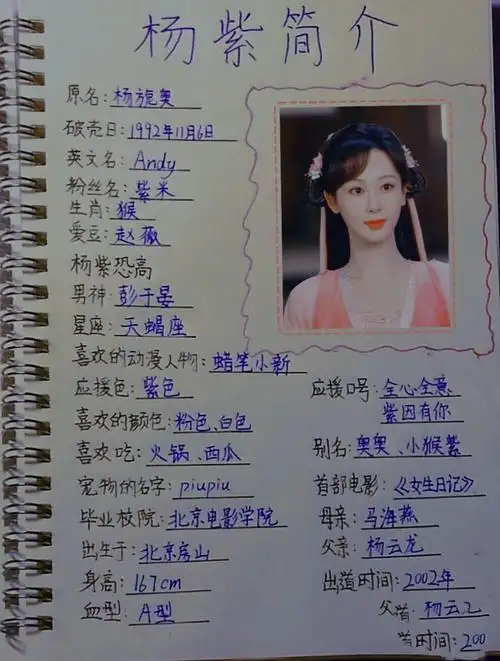 杨紫简介
原名:杨旎奥
破壳日:1992年11月6日
英文名:Andy
粉丝名:紫米
生肖:猴
爱豆:赵薇
杨紫恐高
男神:彭于晏
星座:天蝎座
喜欢的动漫人物:蜡笔小新
应援色:紫色
喜欢的颜色:粉色、白色
喜欢吃:火锅、西瓜
宠物的名字:piupiu
毕业校院:北京电影学院
出生于:北京房山
身高:167cm
血型:A型
应援口号:全心全意
紫因有你
别名:奥奥、小猴紫
首部电影:《女生日记》
母亲:马海燕
父亲:杨云龙
出道时间:2002年
父亲:杨云
时间:200